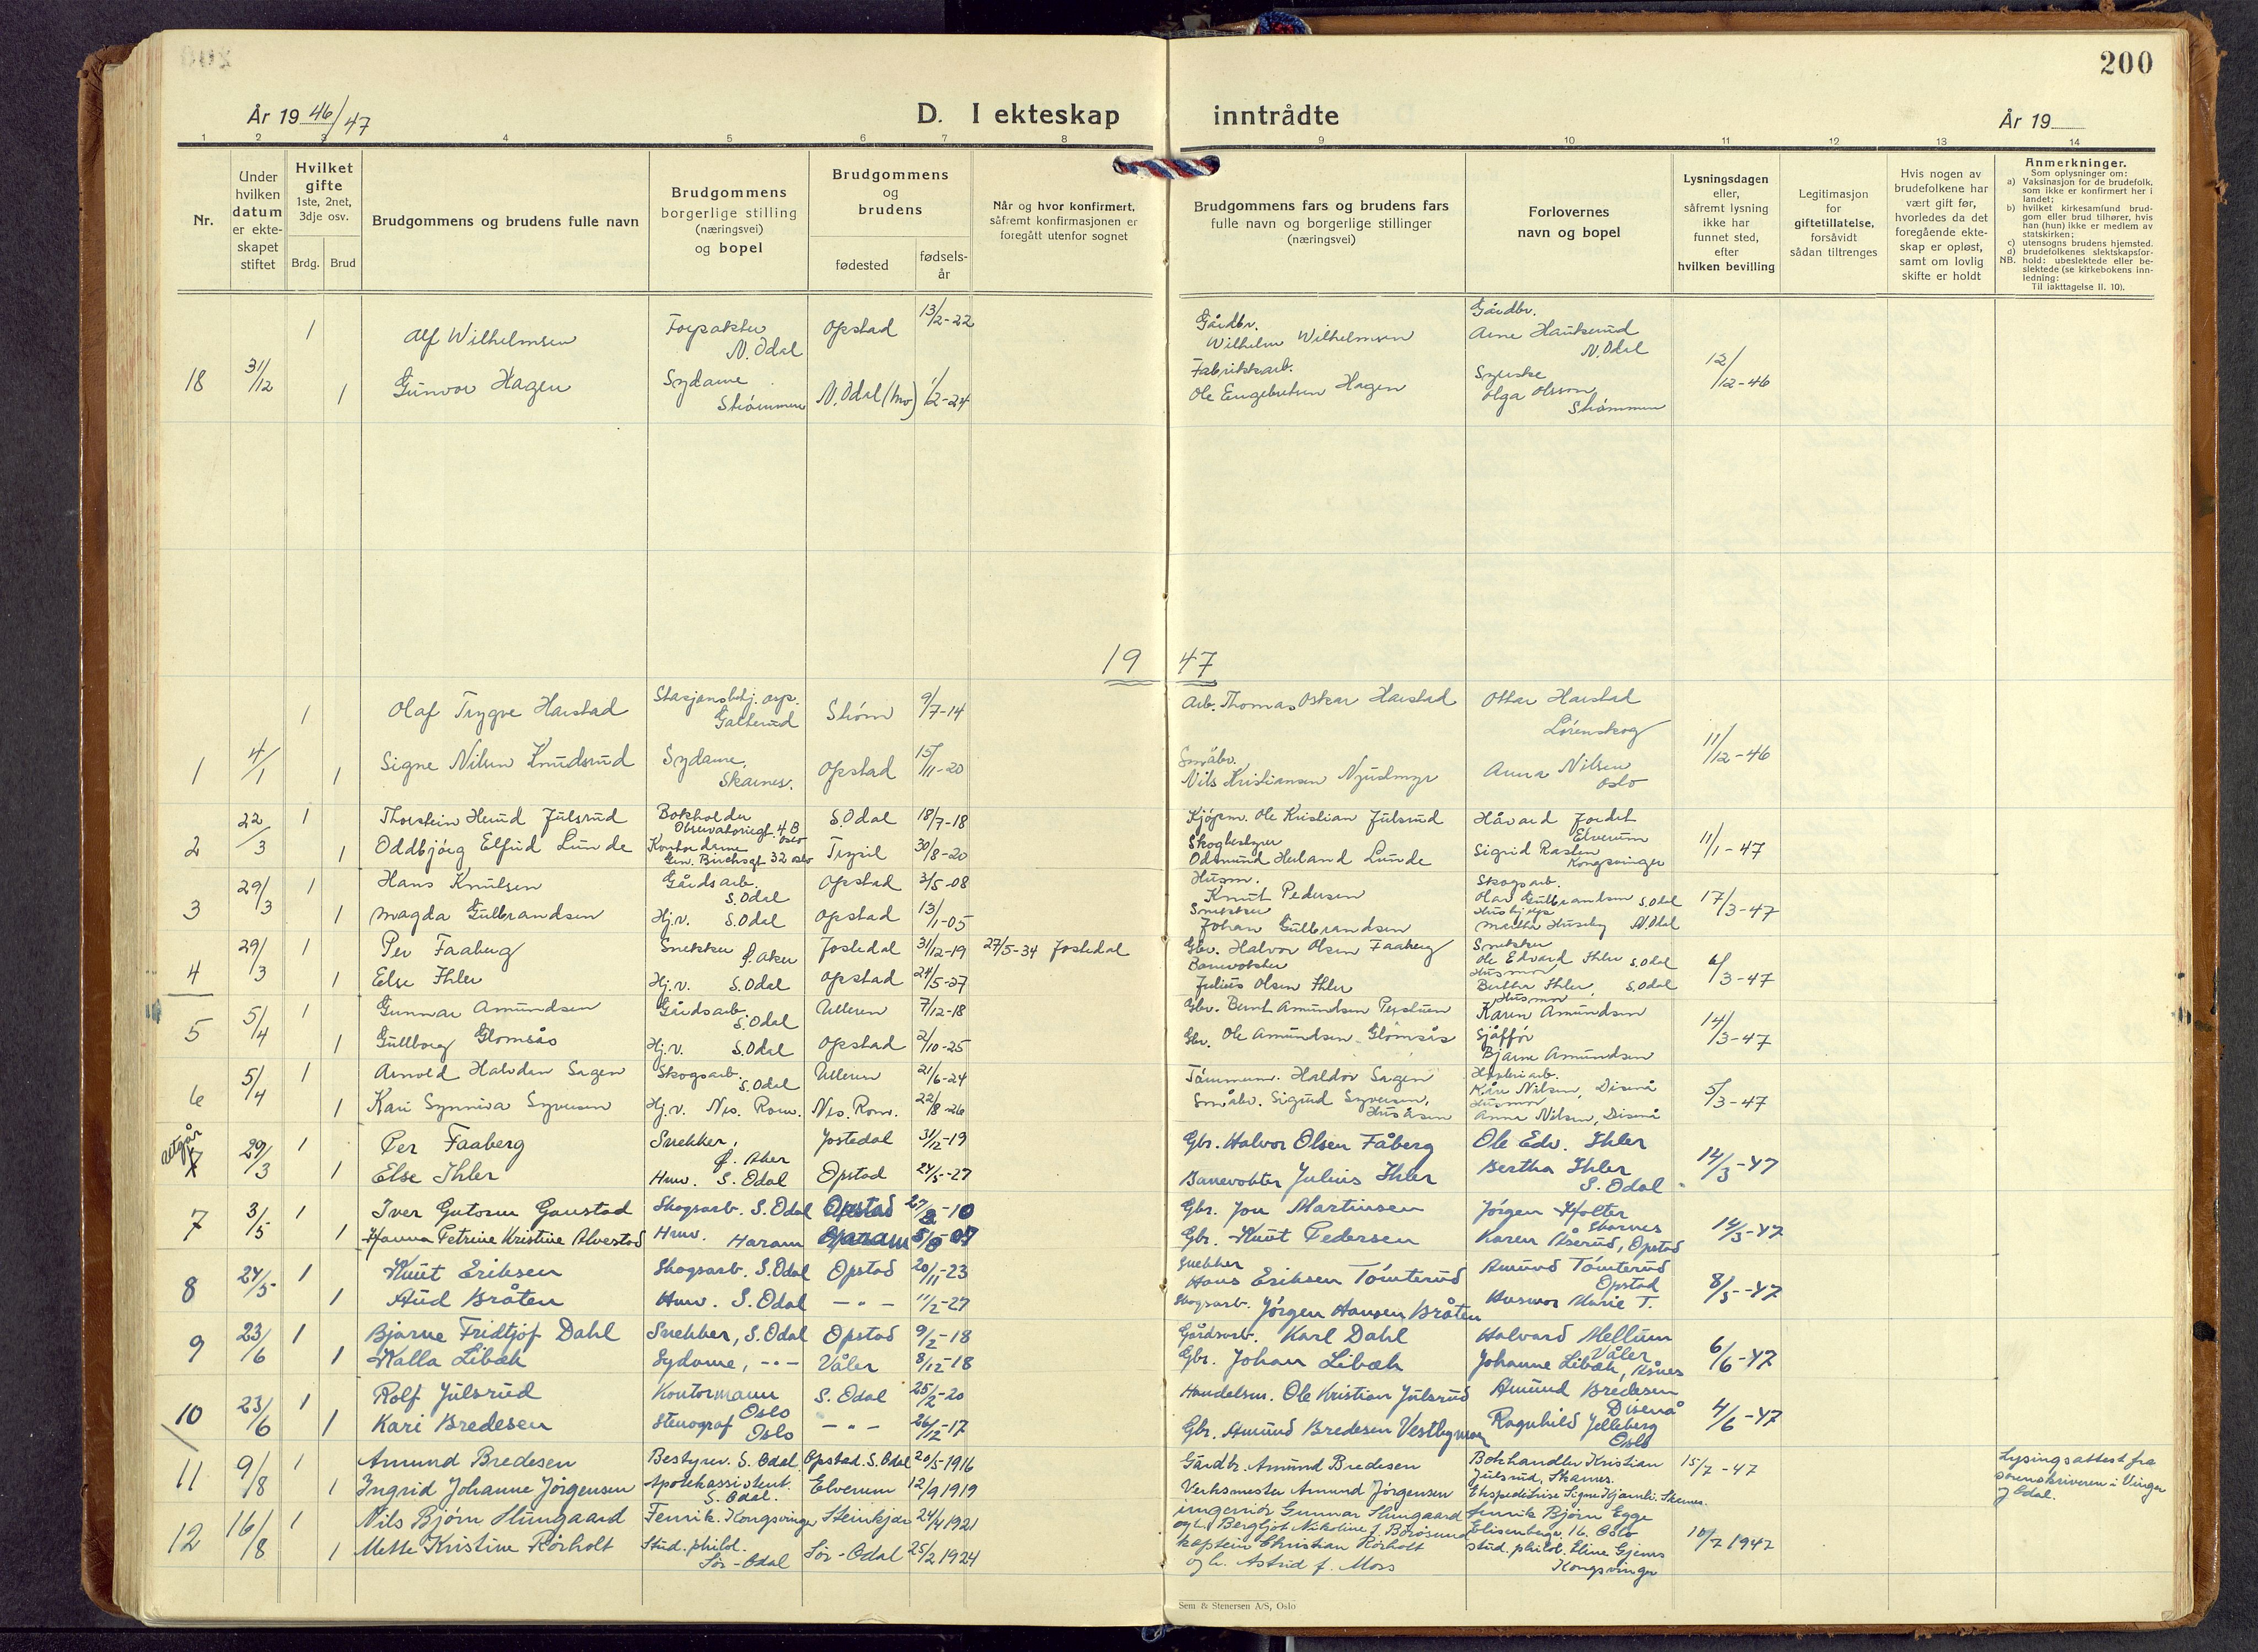 200
År 19 46/47
D. I ekteskap inntrådte
År 19
1 2 3 4 5 6 7 8 9 10 11 12 13 14
Nr.
Under hvilken datum er ekte-skapet stiftet
Hvilket gifte 1ste, 2net, 3dje osv.
Brdg. Brud
Brudgommens og brudens fulle navn
Brudgommens borgerlige stilling (næringsvei) og bopel
Brudgommens og brudens
fødested
fødsels-år
Når og hvor konfirmert, såfremt konfirmasjonen er foregått utenfor sognet
Brudgommens fars og brudens fars fulle navn og borgerlige stillinger (næringsvei)
Forlovernes navn og bopel
Lysningsdagen eller, såfremt lysning ikke har funnet sted, efter hvilken bevilling
Legitimasjon for giftetillatelse, forsåvidt sådan tiltrenges
Hvis nogen av brudefolkene har vært gift før, hvorledes da det foregående ekte-skap er opløst, samt om lovlig skifte er holdt
Anmerkninger.
Som oplysninger om:
a) Vaksinasjon for de brudefolk, som ikke er konfirmert her i landet;
b) hvilket kirkesamfund brud-gom eller brud tilhører, hvis han (hun) ikke er medlem av statskirken;
c) utensogns brudens hjemsted.
d) brudefolkenes slektskapsfor-hold: ubeslektede eller be-slektede (se kirkebokens inn-ledning:
NB.
Til iakttagelse II. 10).
1 Alf Wilhelmsen Forpakter N. Odal Opstad 13/2-22 Gårdbr. Wilhelm Wilhelmsen Gårdbr. Arne Haukerud N. Odal
18 31/12 1 Gunvor Hagen Sydame Strømmen N. Odal (Mo) 1/2-24 Fabrikkarb. Ole Engebretsen Hagen Syerske Olga Olsson Strømmen 12/12-46
1947
1 Olaf Trygve Harstad Stasjonsbetj. asp. Galterud Strøm 9/7-14 Arb. Thomas Oskar Harstad Ottar Harstad Lørenskog
1 4/1 1 Signe Nilsen Knudsrud Sydame, Skarnes. Opstad 15/11-20 Småbr. Nils Kristiansen Nysetmyr Anna Nilsen Oslo 11/12-46
2 22/3 1 Thorstein Herud Julsrud Bokholder Observatoriegt. 4 B Oslo S. Odal 18/7-18 Kjøpm. Ole Kristian Julsrud Håvard Jordet Elverum
1 Oddbjørg Elfrid Lunde Kontordame Gen. Birchsgt 32 Oslo Trysil 30/8-20 Skogbestyrer Odmund Herland Lunde Sigrid Rasten Kongsvinger 11/1-47
3 29/3 1 Hans Knutsen Gårdsarb. S. Odal Opstad 3/5-08 Husm. Knut Pedersen Skogsarb. Olav Gulbrandsen S. Odal
1 Magda Gulbrandsen Hj.v. S. Odal Opstad 13/1-05 Snekker Johan Gulbrandsen Martha Huseby N. Odal 17/3-47
4 29/3 1 Per Faaberg Snekker Ø. Aker Jostedal 31/12-19 27/5-34 Jostedal Gbr. Halvor Olsen Faaberg Snekker Ole Edvard Ihler S. Odal
1 Else Ihler Hj.v. S. Odal Opstad 24/5-27 Banevokter Julius Olsen Ihler Husmor Bertha Ihler, S. Odal 6/3-47
5 5/4 1 Gunnar Amundsen Gårdsarb. S. Odal Ulleren 7/12-18 Gbr. Bernt Amundsen Husmor Karen Amundsen
1 Gullborg Glomsås Hj.v. S. Odal Opstad 2/10-25 Gbr. Ole Amundsen Glomsås Sjåffør Bjarne Amundsen 14/3-47
6 5/4 1 Arnold Halvdan Sagen Skogsarb. S. Odal Ulleren 21/6-24 Tømmerm. Haldor Sagen Kåre Nilsen, Disenå
1 Kari Synniva Syversen Hj.v. Nes. Rom. Nes. Rom. 22/8-26 Småbr. Sigurd Syversen, Husåsen Husmor Anna Nilsen, Disenå 5/3-47
utgår 7 29/3 1 Per Faaberg Snekker, Ø. Aker Jostedal 31/12-19 Gbr. Halvor Olsen Fåberg Ole Edv. Ihler
1 Else Ihler Hmv. S. Odal Opstad 24/5-27 Banevokter Julius Ihler Bertha Ihler S. Odal 14/3-47
7 3/5 1 Iver Gutorm Gaustad Skogsarb. S. Odal Opstad 27/2-10 Gbr. Jon Martinsen Jørgen Holter Skarnes
1 Hanna Petrine Kristine Alvestad Hmv. Haram Haram 5/8-07 Gbr. Knut Pedersen Karen Åserud, Opstad 14/3-47
8 24/5 1 Knut Eriksen Skogsarb. S. Odal Opstad 20/11-23 Snekker Hans Eriksen Tømterud Amund Tømterud Opstad
1 Aud Bråten Hmv. S. Odal -"- 11/2-27 Skogsarb. Jørgen Hansen Bråten Husmor Marie T. 8/5-47
9 23/6 1 Bjarne Fridtjof Dahl Snekker, S. Odal Opstad 9/2-18 Gårdsarb. Karl Dahl Halvard Mellum Våler
1 Kalla Libæk Sydame, -"- Våler 8/12-18 Gbr. Johan Libæk Johanne Libæk, Åsnes 6/6-47
10 23/6 1 Rolf Julsrud Kontormann Oslo S. Odal 25/2-20 Handelsm. Ole Kristian Julsrud Amund Bredesen Disenå
1 Kari Bredesen Stenograf Oslo -"- 26/12-17 Gbr. Amund Bredesen Ragnhild Jelleberg Oslo 4/6-47
11 9/8 1 Amund Bredesen Bestyrer. S. Odal. Opstad. S. Odal 20/5-1916 Gårdbr. Amund Bredesen Bokhandler Kristian Julsrud, Skarnes. 15/7-47 Lysingsattest fra sorenskriveren i Vinger og Odal.
1 Ingrid Johanne Jørgensen Apotekassistent. S. Odal. Elverum 12/9 1919 Verksmester Amund Jørgensen Ekspeditrise Signe Skarnes.
12 16/8 1 Nils Bjørn Hungaard Fenrik. Kongsvinger Steinkjer 24/4 1921 ingeniør Gunnar Hungaard og h. Bergljot Nikoline f. Fenrik Bjørn Egge Elisenbergv. 16. Oslo
1 Mette Kristine Rørholt Stud. philol. Sør-Odal Sør-Odal 25/2 1924 kaptein Christian Rørholt og h. Astrid f. Moss stud. philol. Eline Kongsvinger 10/7 1947
Sem & Stenersen A/S, Oslo